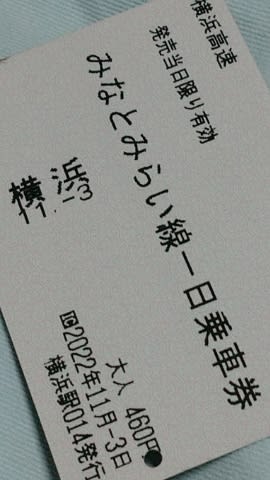 横浜高速
発売当日限り有効
みなとみらい線一日乗車券
横浜
11.-3
大人 460円
2022年11月-3日
横浜駅014発行